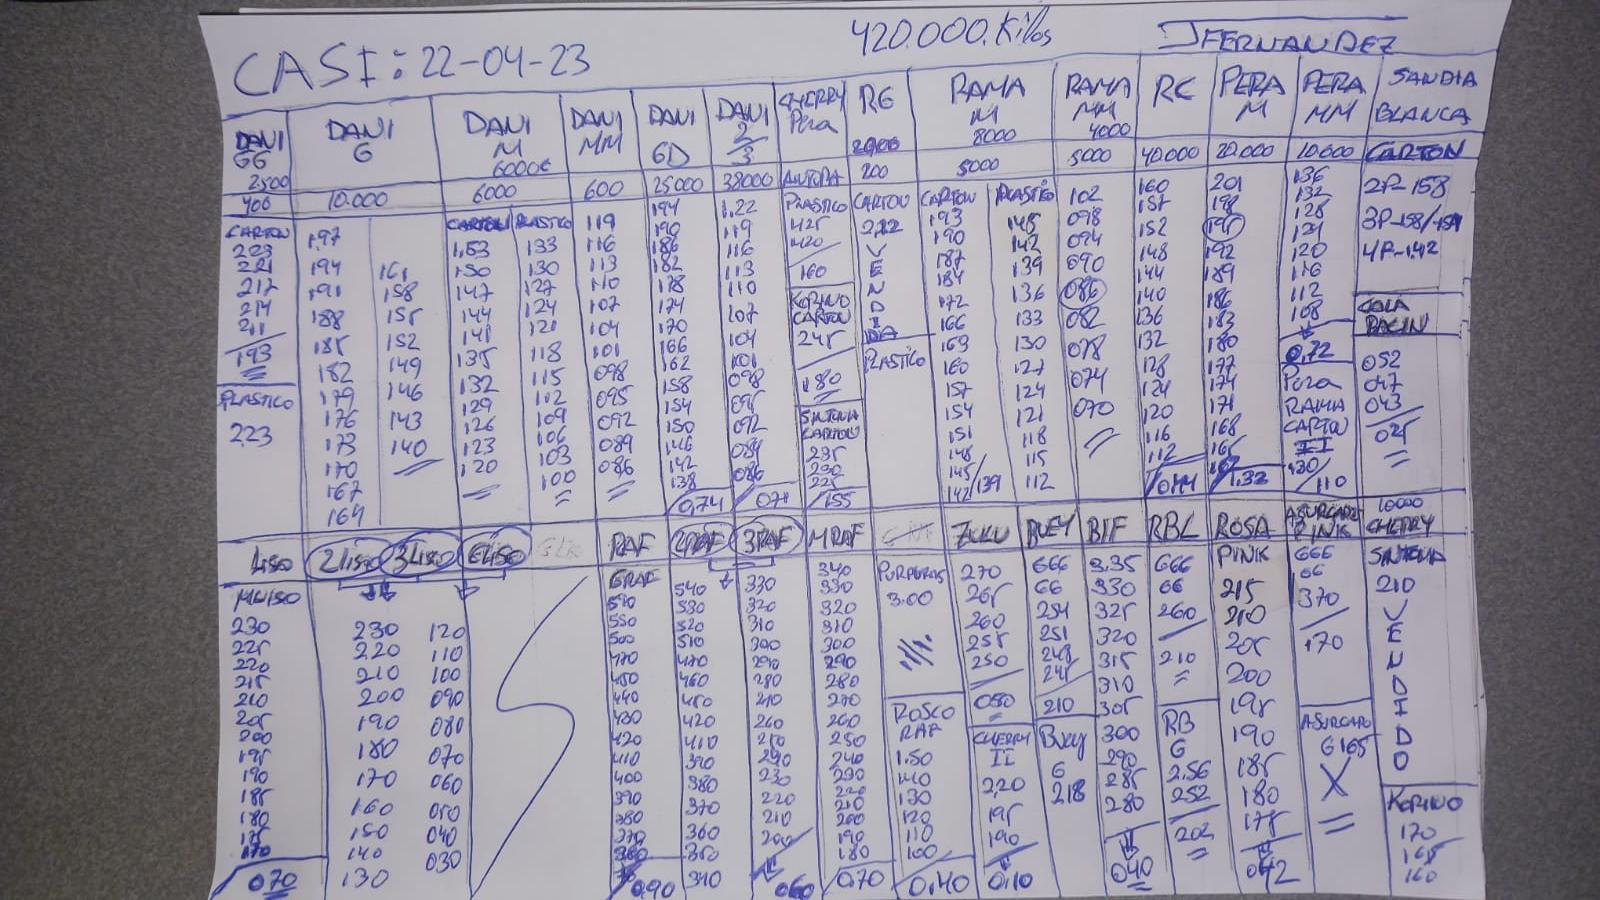 420.000.Kilos
JFERNANDEZ
CASI: 22-04-23
DANI GG 2500
DANI G
DANI M 6000€
DANI MM
DANI GD
DANI 2/3
CHERRY Pera
RG 2000
RAMA M 8000
RAMA MM 4000
RC
PERA M
PERA MM
SANDIA BLANCA
400
10.000
6000
600
25000
38000
200
5000
5000
40.000
20.000
10.600
CARTON
CARTON
223
221
217
214
211
193
PLASTICO
223
197
194
191
188
185
182
179
176
173
170
167
164
161
158
155
152
149
146
143
140
CARTON
153
150
147
144
141
135
132
129
126
123
120
PLASTICO
133
130
127
124
121
118
115
112
109
106
103
100
119
116
113
110
107
104
101
098
095
092
089
086
194
190
186
182
178
174
170
166
162
158
154
150
146
142
138
0,74
1.22
119
116
113
110
107
104
101
098
095
092
089
086
071
PLASTICO
425
420
160
KORINO
CARTON
245
180
SINTONIA
CARTON
235
230
225
155
CARTON
222
V
E
N
D
I
DA
PLASTICO
CARTON
193
190
187
184
172
166
163
160
157
154
151
148
145
142/139
PLASTICO
145
142
139
136
133
130
127
124
121
118
115
112
102
098
094
090
086
082
078
074
070
160
157
152
148
144
140
136
132
128
124
120
116
112
0,44
201
198
195
192
189
186
183
180
177
174
171
168
165
1.32
136
132
128
124
120
116
112
108
0,72
Pera
RAMA
CARTON
II
130
110
2P-158
3P-158/154
4P-142
COLA
052
047
043
025
LISO
2LISO
3LISO
GLISO
RAF
2RAF
3RAF
MRAF
ZUKU
BUEY
BIF
RBL
ROSA
ASURCADO PINK
10000
CHERRY
MLISO
230
225
220
215
210
205
200
195
190
185
180
175
170
070
230
220
210
200
190
180
170
160
150
140
130
120
110
100
090
080
070
060
050
040
030
GRAF
590
550
500
470
450
440
430
420
410
400
390
380
370
360
0,90
540
530
520
510
470
460
450
420
410
390
380
370
360
350
340
330
320
310
300
290
280
270
260
250
240
230
220
210
200
060
340
330
320
310
300
290
280
270
260
250
240
230
220
210
200
190
180
0,70
PURPURAS
3.00
ROSCO
RAF
1.50
140
130
120
110
100
0,40
270
265
260
255
250
050
CHERRY
II
2,20
195
190
0,10
666
66
254
251
248
245
210
Buey
G
218
3.35
330
325
320
315
310
305
300
290
285
280
040
666
66
260
210
RB
G
2.56
252
202
PINK
215
210
205
200
195
190
185
180
175
042
666
66
370
170
ASURCADO
G 165
X
SINTONIA
210
V
E
N
D
I
D
O
KORINO
170
165
160